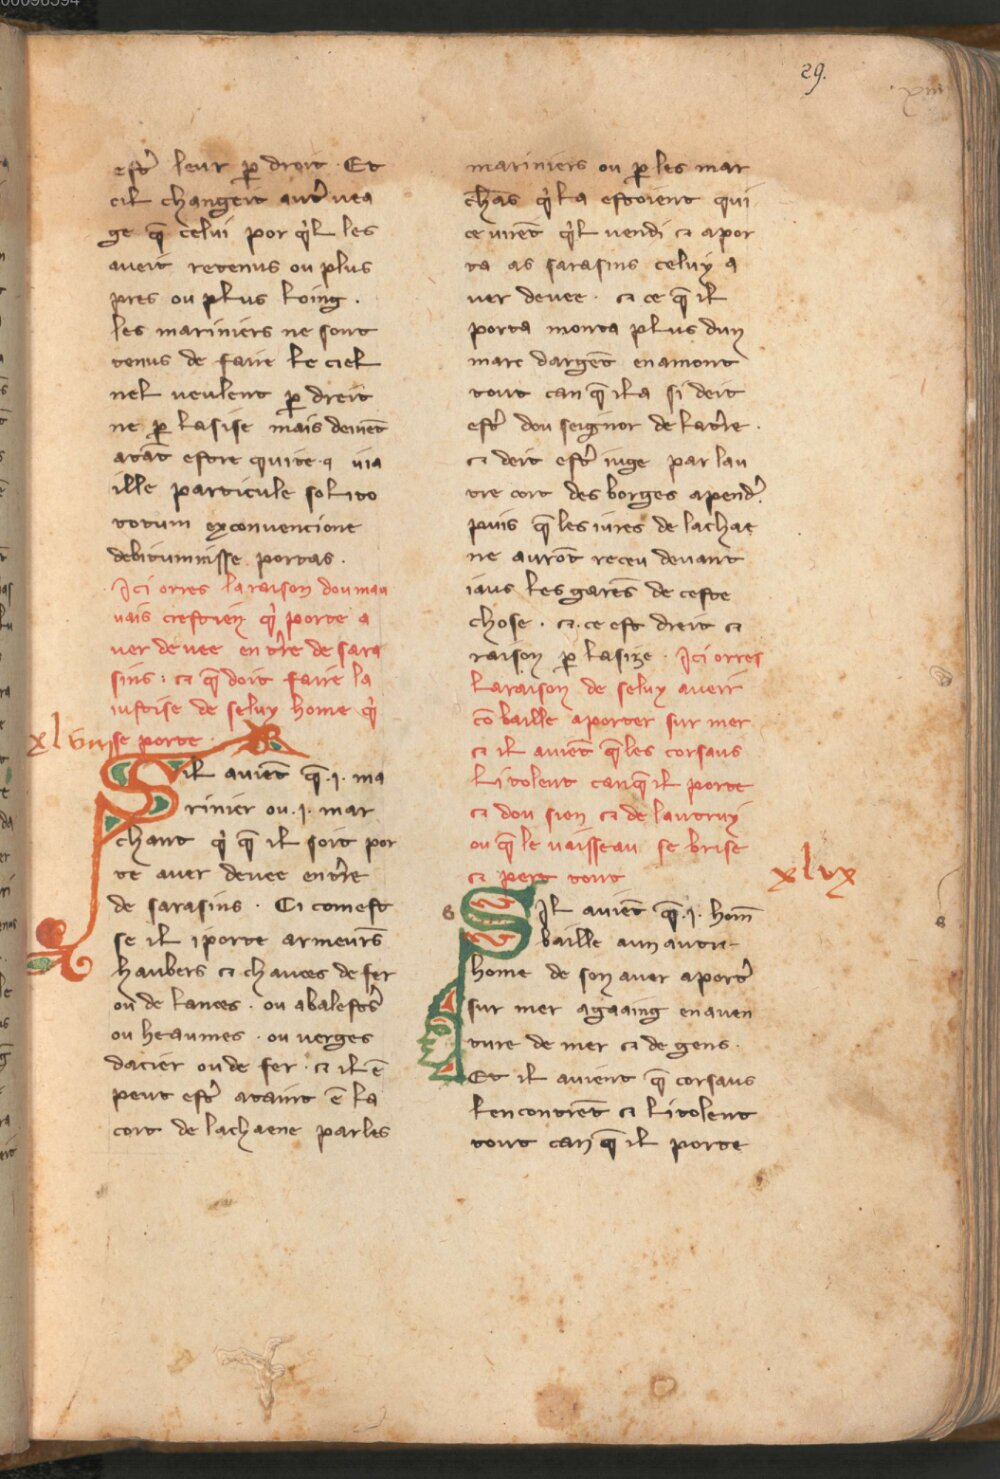 29.
estr̉ leur ꝑ droit · Et
cil changeit autr̉ uea
ge q̄ celui por qͥl les
aueit retenus ou plus
pres ou plus loing ·
les mariniers ne sont
tenus de faire le ciel
nel ueulent ꝑ dreit
ne ꝑ lasise mais deiuēt
atāt estre quite · q̄ uia
ille particule solito
totum exconuencione
debitumisse portas ·
Ici orres la raison dou mau
uais crestien qͥ porte a
uer deuee en tr̉re de sara
sins · ⁊ q̄ doit faire la
iustise de seluy home qͥ
se porte ·
xlviii
Sil auiēt q̄ ·i· ma
rinier ou ·i· mar
chant qͥ q̄ il soit por
te auer deuee en tr̉re
de sarasins · Ci com est
se il i porte armeurēs
haubers ⁊ chauces de fer
ou de lances · ou abalestr̉
ou heaumes · ou uerges
dacier ou de fer · ⁊ il ē
peut estr̉ ataint ē la
cort de lachaene par les
mariniers ou ꝑ les mar
chās qͥ la estoient qui
ce uirēt qͥl uendi ⁊ apor
ta as sarasins celuy a
uer deuee · ⁊ ce q̄ il
porta monta plus dun
marc dargēt en amont
tout can q̄ il a si deit
estr̉ dou seignor de latr̉re ·
⁊ deit estr̉ iuge par lau
tre cort des borges apendr̉ ·
puis q̄ les iures de lachae
ne aurōt receu deuant
iaus les garēs de ceste
chose · ⁊ ce est dreit ⁊
raison ꝑ lasize · Ici orres
La raison de seluy aueir
cō baille aporter sur mer
⁊ il auiēt q̄ les corsaus
li tolent can q̄ il porte
⁊ dou sien ⁊ de lautruy
ou q̄ le uaisseau se brise
⁊ pert tout
xlvx
Sil auiēt q̄ ·i· hom̄
baille a un autre
home de son auer aportr̉
sur mer agaaing en auen
ture de mer ⁊ de gens ·
Et il auient q̄ corsaus
lencontrēt ⁊ li tolent
tout can q̄ il porte